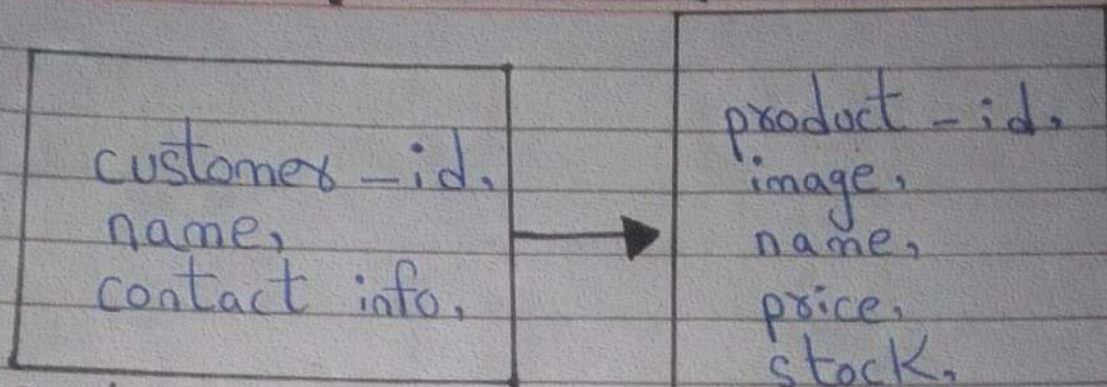 customer-id,
name,
contact info,
product-id,
image,
name,
price,
stock,